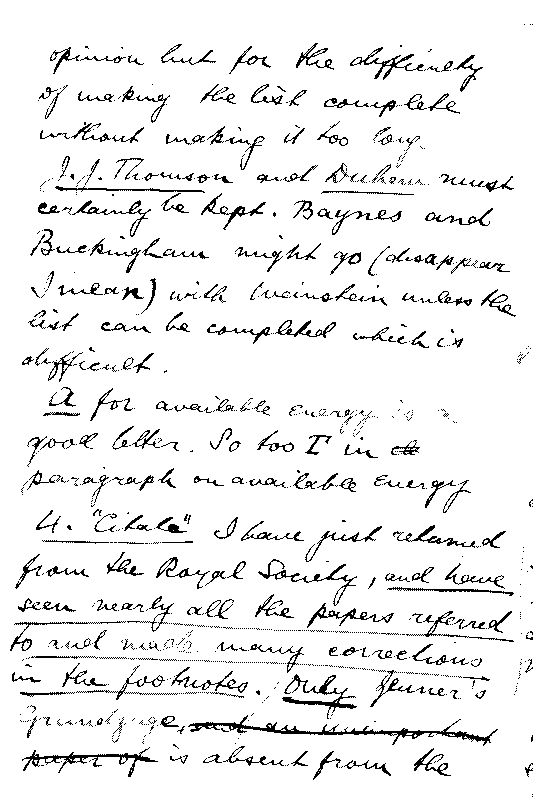 opinion but for the difficulty
of making the list complete
without making it too long
J.J. Thomson and Duhem must
certainly be kept. Baynes and
Buckingham might go (disappear
I mean) with Weinstein unless the
list can be completed which is
difficult.
A for available energy is a
good letter. So too I in
paragraph on available energy
4. "Citate" I have just returned
from the Royal Society, and have
seen nearly all the papers referred
to and made many corrections
in the footnotes. Only
Grundzüge, and an unimportant
paper of is absent from the